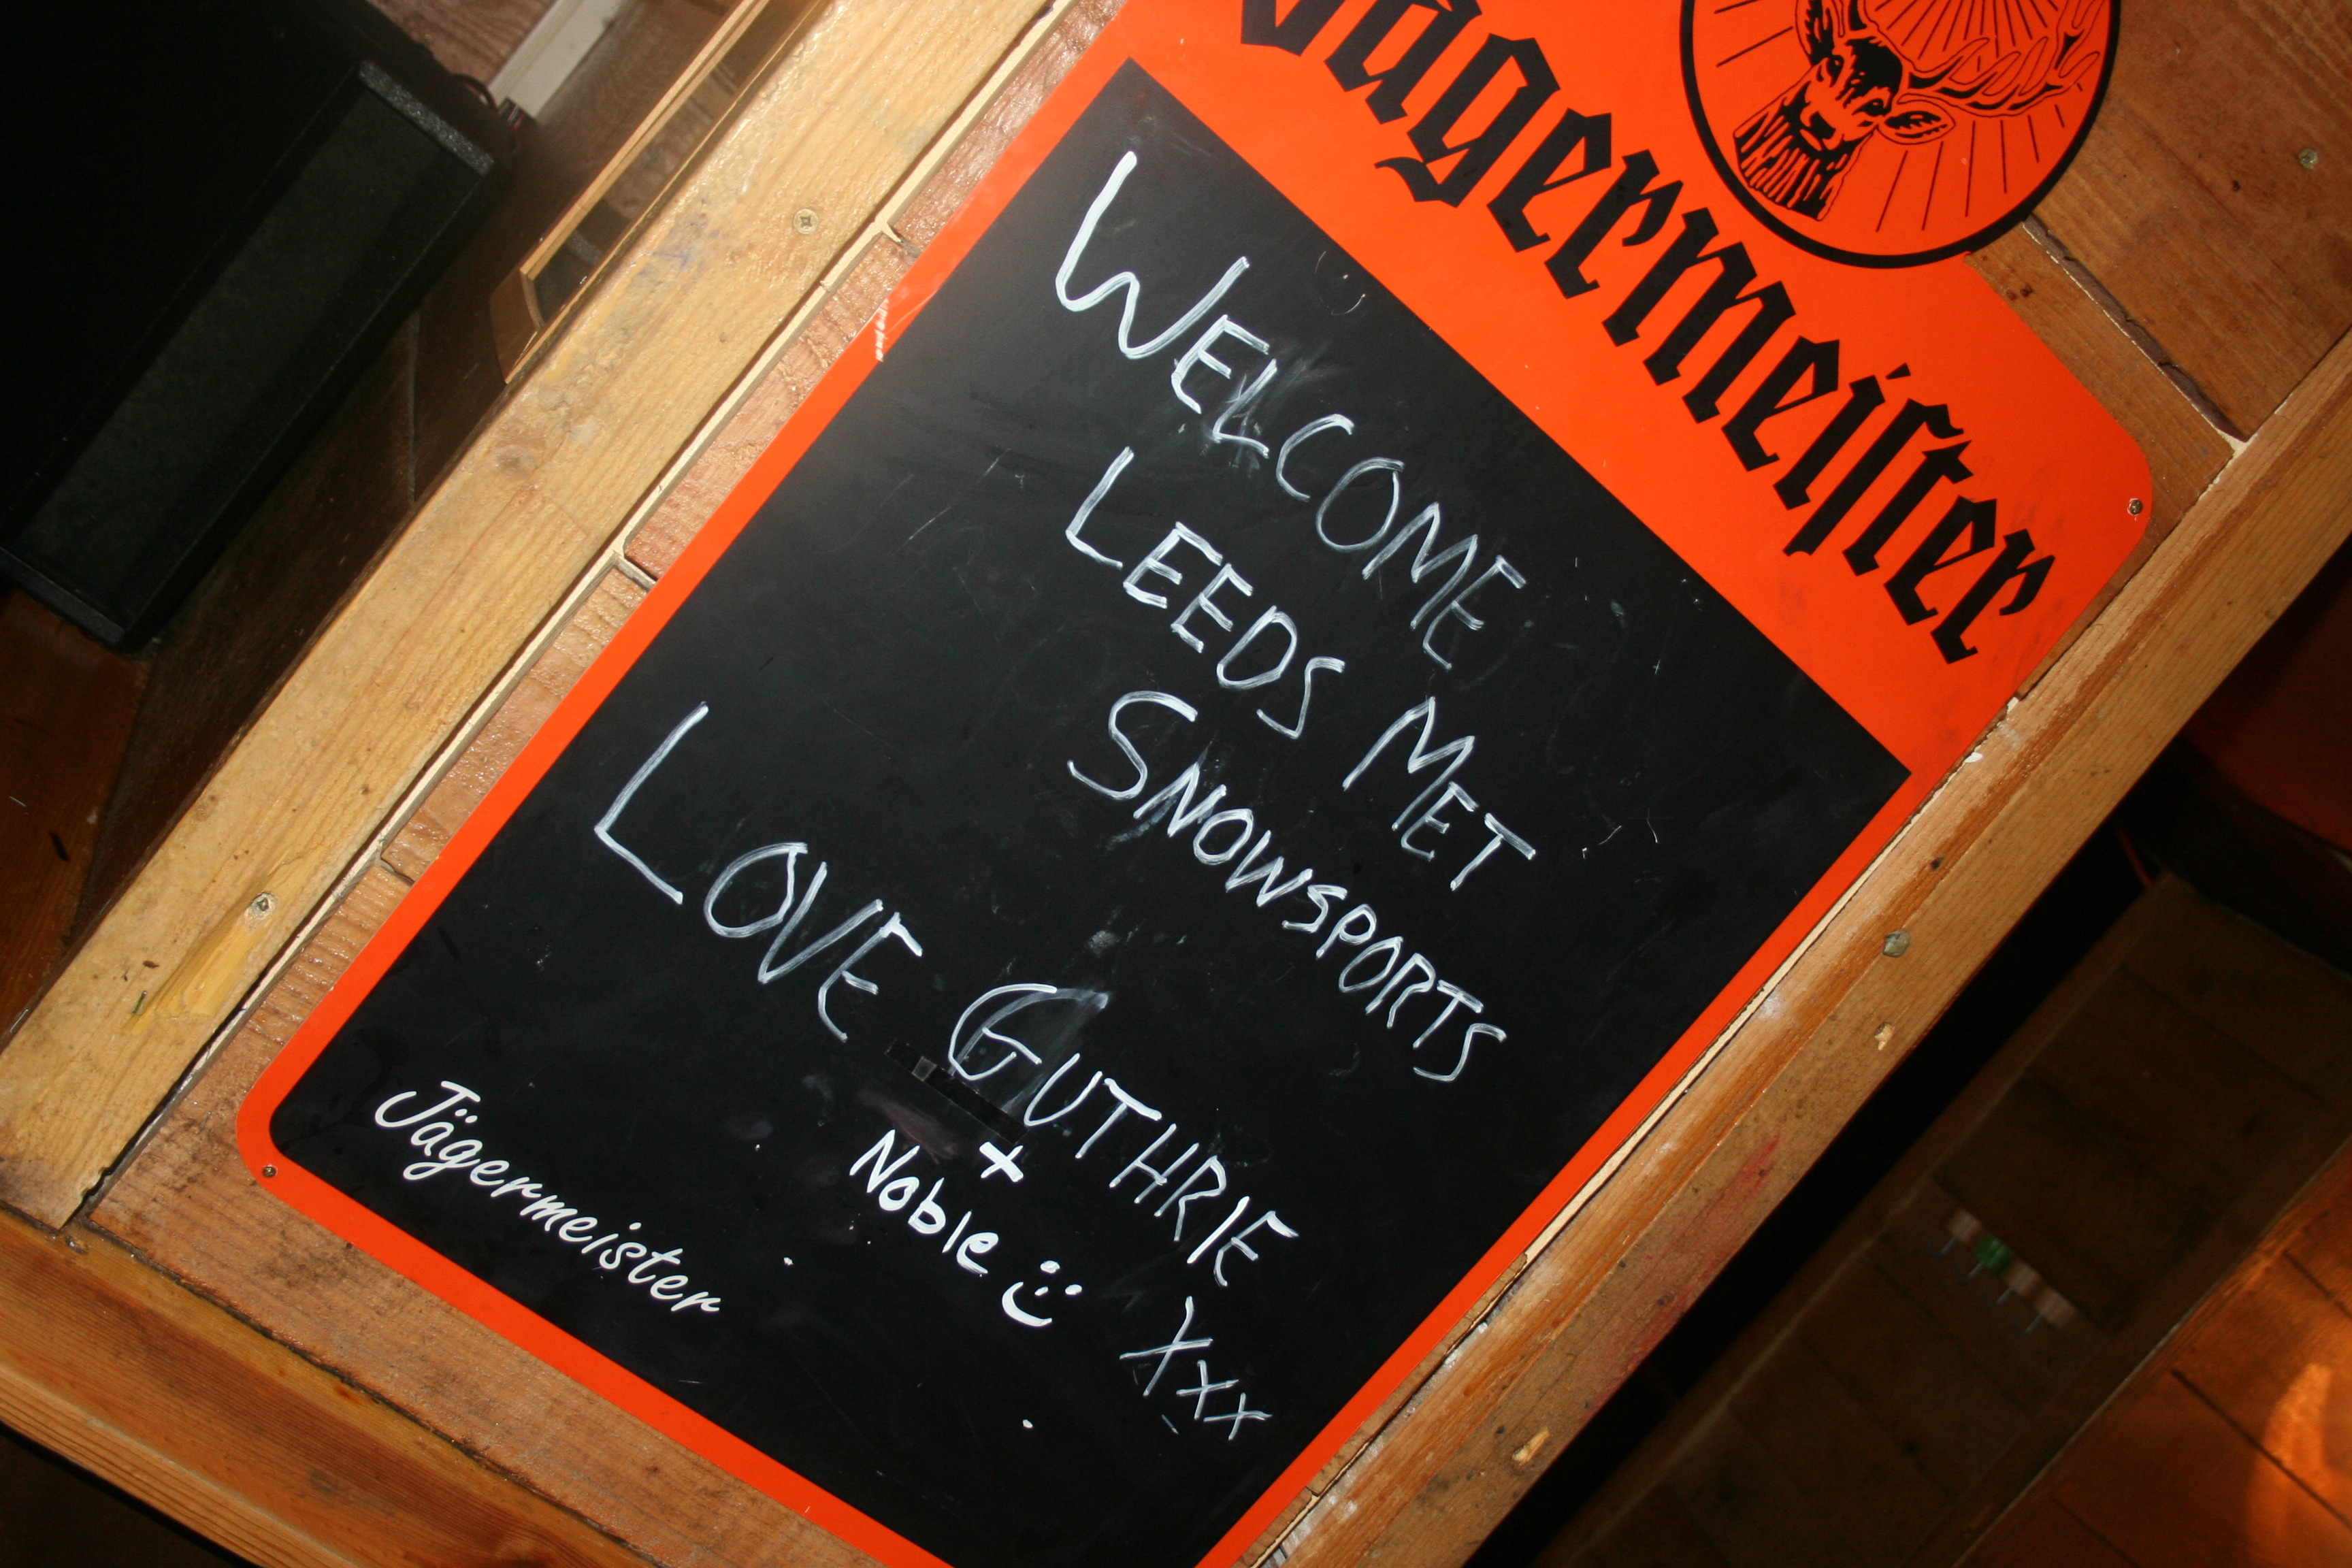 Jägermeister
WELCOME
LEEDS MET
SNOWSPORTS
LOVE GUTHRIE
+
Noble :)
xxx
Jägermeister